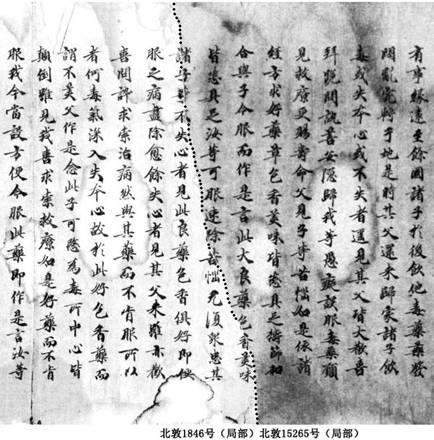 有事緣遠至餘國諸子於後飲他毒藥藥發
悶亂宛轉于地是時其父還來歸家諸子飲
毒或失本心或不失者遥見其父皆大歡喜
拜跪問訊善安隱歸我等愚癡誤服毒藥願
見救療更賜壽命父見子等苦惱如是依諸
經方求好藥草色香美味皆悉具足擣篩和
合與子令服而作是言此大良藥色香美味
皆悉具足汝等可服速除苦惱无復眾患其
諸子中不失心者見此良藥色香俱好即便
服之病盡除愈餘失心者見其父來雖亦歡
喜問訊求索治病然與其藥而不肯服所以
者何毒氣深入失本心故於此好色香藥而
謂不美父作是念此子可愍為毒所中心皆
顛倒雖見我喜求索救療如是好藥而不肯
服我今當設方便令服此藥即作是言汝等
北敦1846号（局部）北敦15265号（局部）